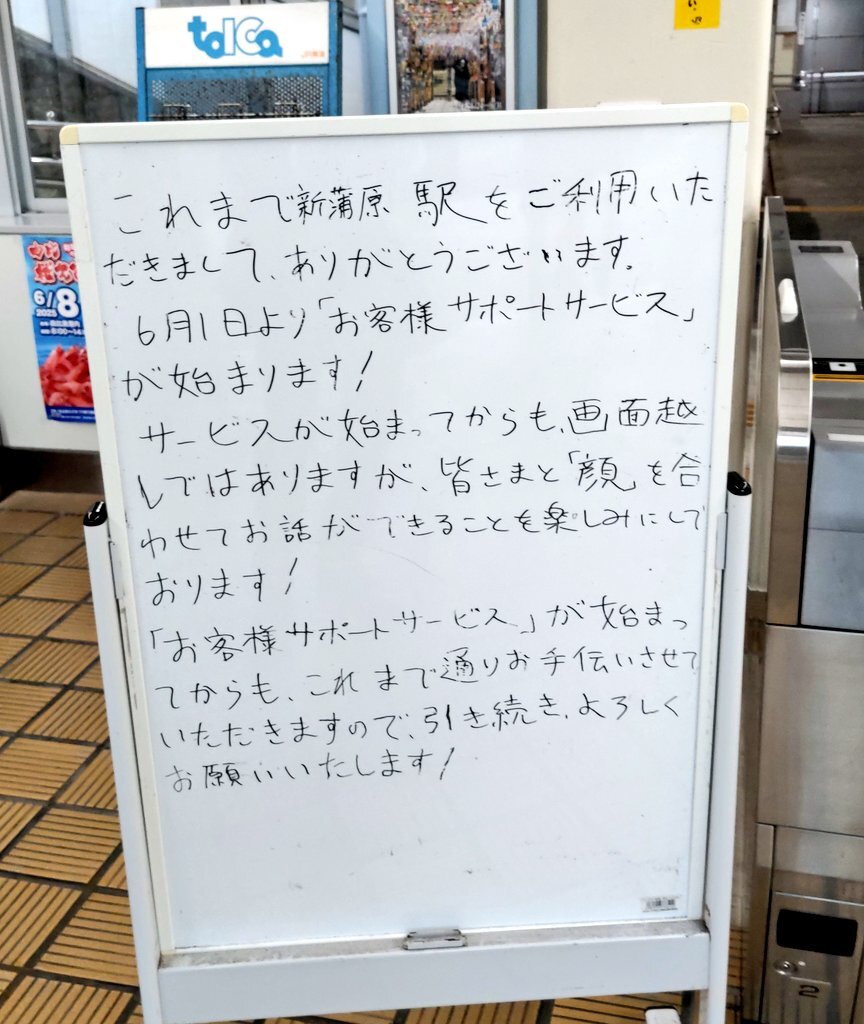 toICa
JR東海
い。
JR
6/8
2025
これまで新蒲原駅をご利用いた
だきまして、ありがとうございます。
6月1日より「お客様サポートサービス」
が始まります!
サービスが始まってからも、画面越
しではありますが、皆さまと「顔」を合
わせてお話ができることを楽しみにして
おります!
「お客様サポートサービス」が始まっ
てからも、これまで通りお手伝いさせて
いただきますので、引き続き、よろしく
お願いいたします!
2